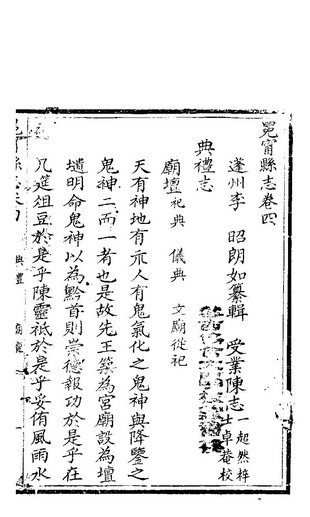 冕甯縣志卷四
蓬州李 昭朗如纂輯 受業陳志一超然梓 士卓菴校
典禮志
廟壇 祀典 儀典 文廟從祀
天有神地有示人有鬼氣化之鬼神與降鑒之
鬼神二而一者也是故先王築為宮廟設為壇
壝明命鬼神以為黔首則崇德報功於是乎在
几筵俎豆於是乎陳靈祇於是乎妥侑風雨水
典禮